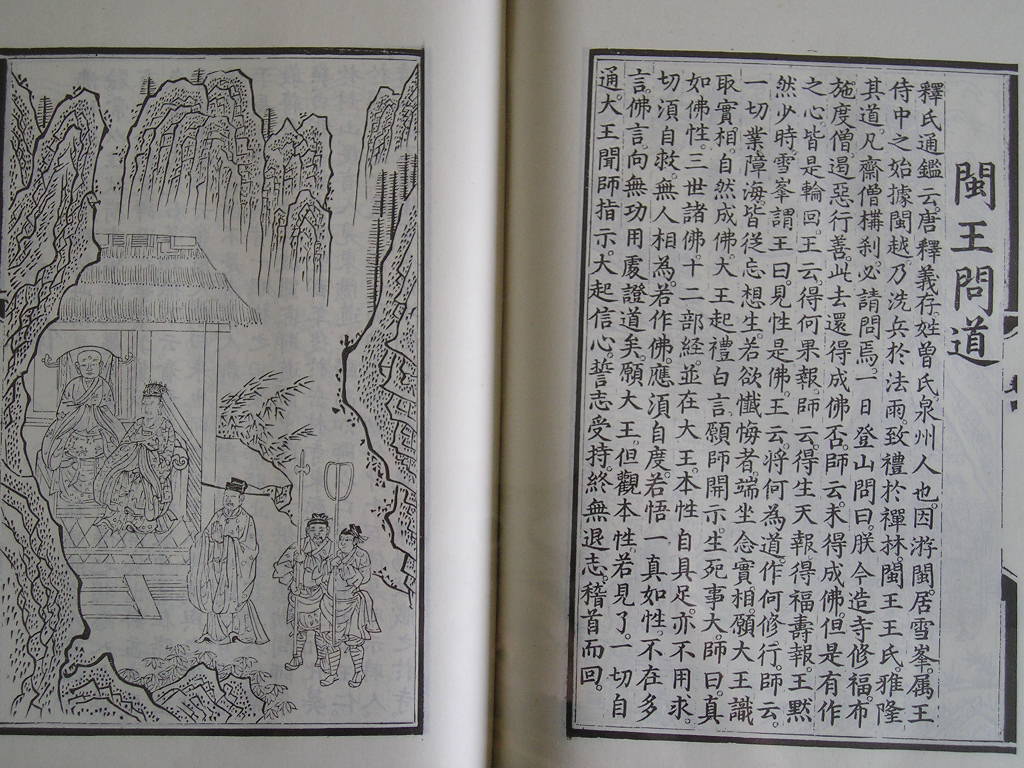 閩王問道
釋氏通鑑云唐釋義存姓曾氏泉州人也。因游閩。居雪峯。屬王
侍中之始據閩越乃洗兵於法雨。致禮於禪林。閩王王氏。雅隆
其道。凡齋僧搆刹。必請問焉。一日登山問曰。朕今造寺修福。布
施度僧。遏惡行善。此去還得成佛否。師云。未得成佛。但是有作
之心。皆是輪回。王云。得何果報。師云。得生天報。得福壽報。王默
然少時。雪峯謂王曰。見性是佛。王云。將何為道。作何修行。師云。
一切業障海。皆從妄想生。若欲懺悔者。端坐念實相。願大王識
取實相。自然成佛。大王起禮白言。願師開示。生死事大。師曰。真
如佛性。三世諸佛。十二部經。並在大王。本性自具足。亦不用求。
切須自救。無人相為。若作佛。應須自度。若悟一真如性。不在多
言。佛言。向無功用處。證道矣。願大王。但觀本性。若見了。一切自
通。大王聞師指示。大起信心。誓志受持。終無退志。稽首而回。